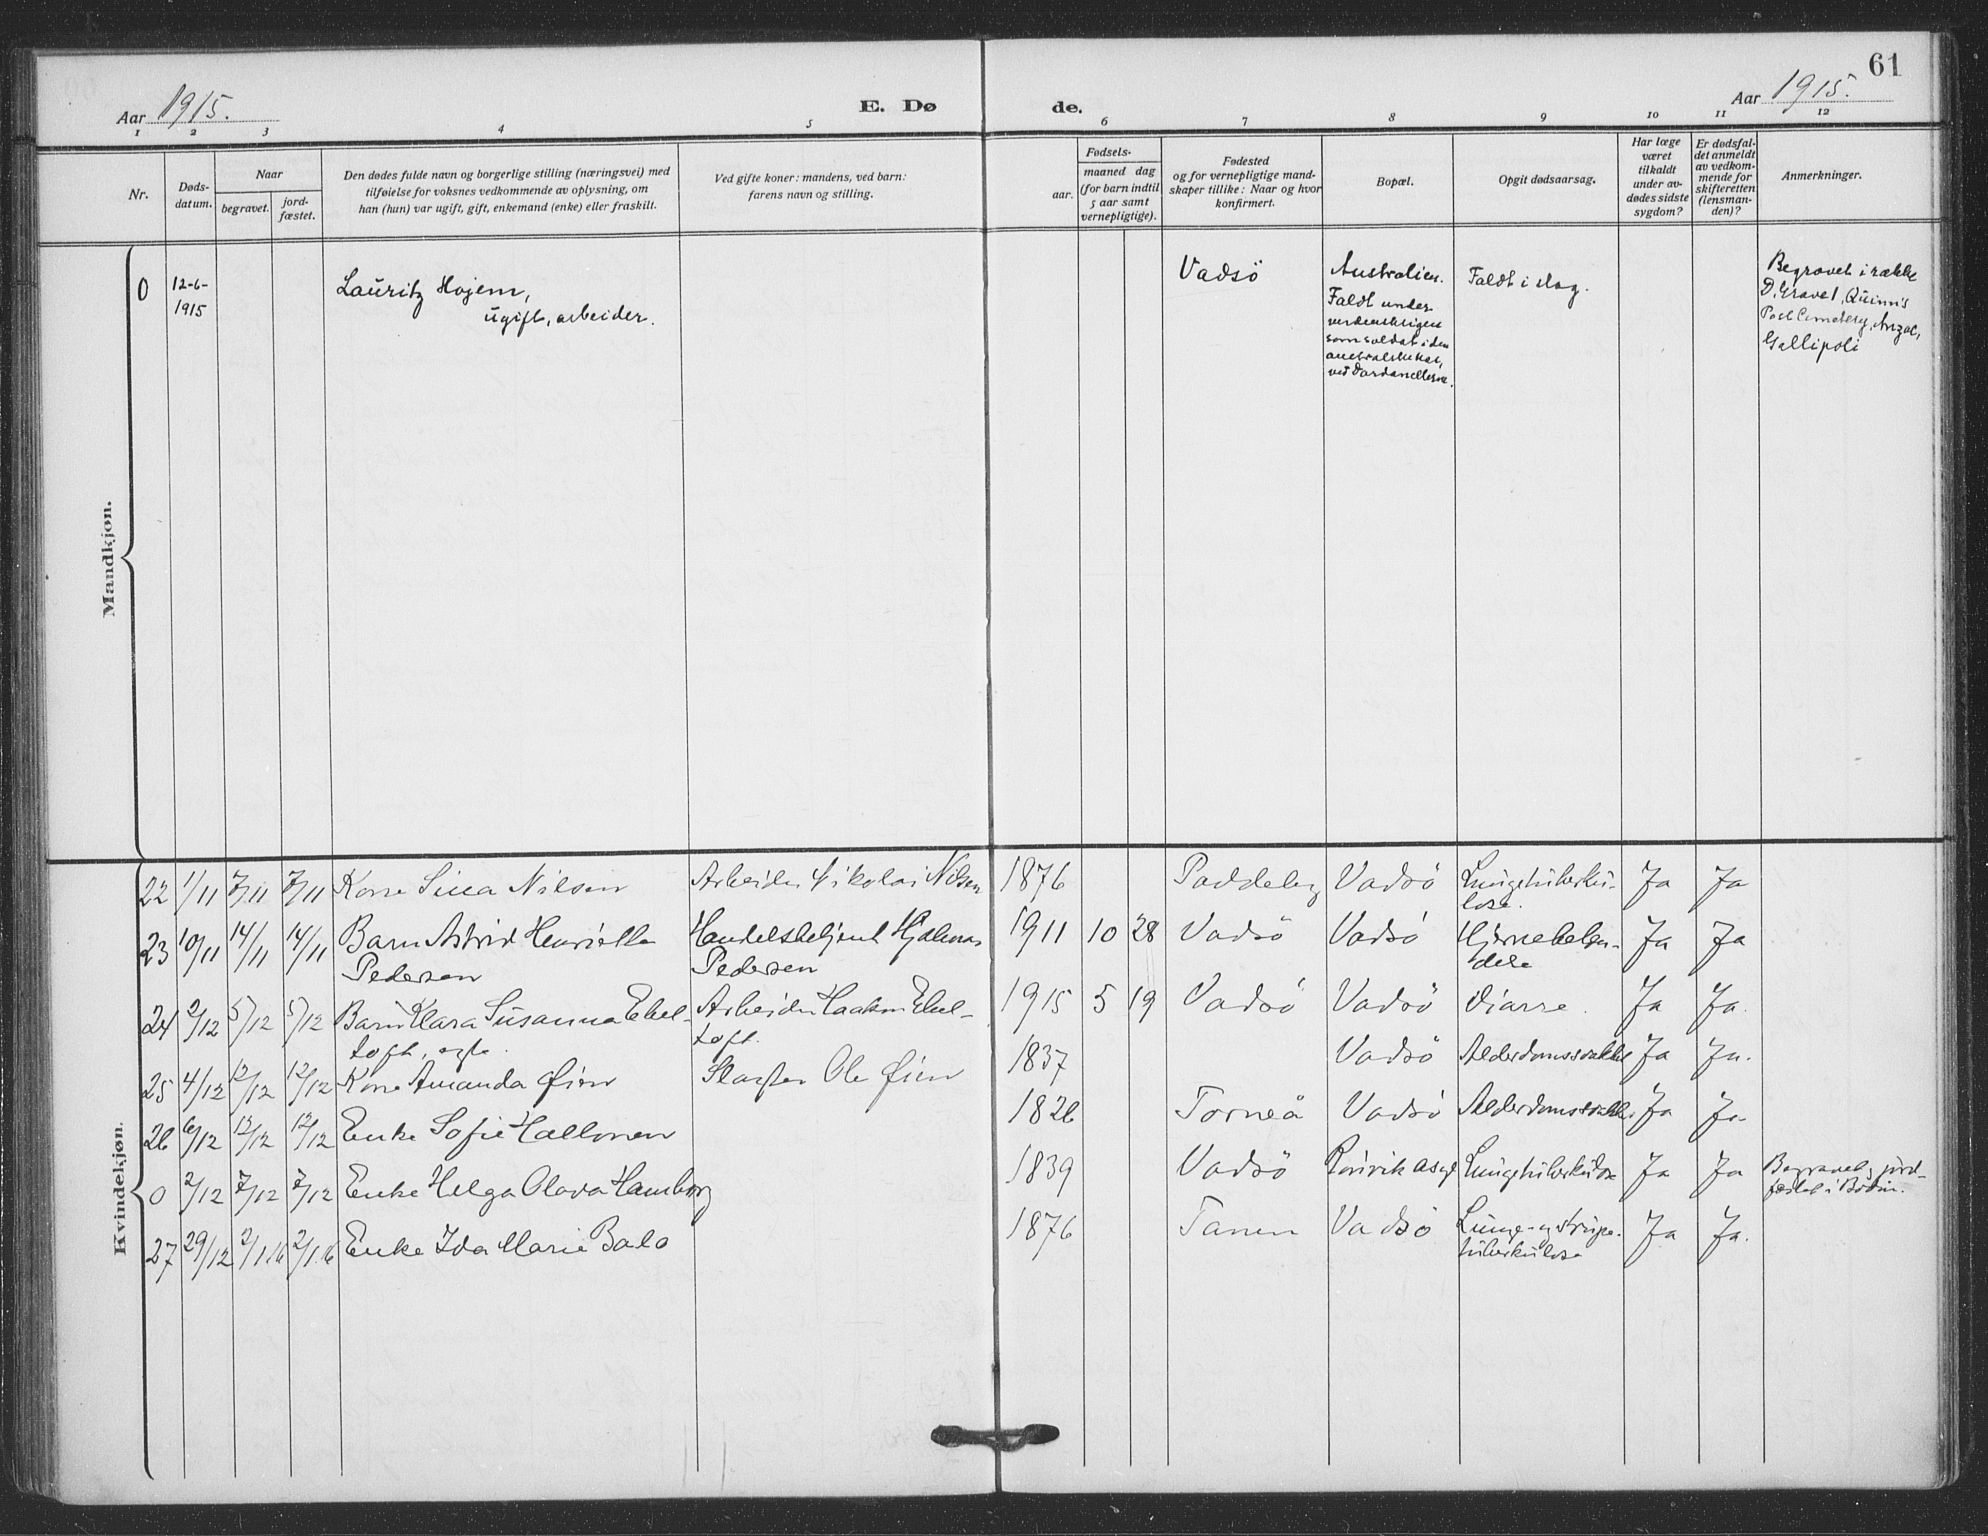 61
Aar 1915.
E. Dø
de.
Aar 1915.
1 2 3 4 5 6 7 8 9 10 11 12
Nr.
Døds-
datum.
Naar
begravet.
jord-
fæstet.
Den dødes fulde navn og borgerlige stilling (næringsvei) med
tilføielse for voksnes vedkommende av oplysning, om
han (hun) var ugift, gift, enkemand (enke) eller fraskilt.
Ved gifte koner: mandens, ved barn:
farens navn og stilling.
Fødsels-
aar.
maaned dag
(for barn indtil
5 aar samt
vernepligtige).
Fødested
og for vernepligtige mand-
skaper tillike: Naar og hvor
konfirmert.
Bopæl.
Opgit dødsaarsag.
Har læge
været
tilkaldt
under av-
dødes sidste
sygdom?
Er dødsfal-
det anmeldt
av vedkom-
mende for
skifteretten
(lensman-
den)?
Anmerkninger.
Mandkjøn.
0
12-6-
1915
Lauritz Hojem,
ugift, arbeider.
Vadsö
Australien.
Faldt under
verdenskrigen
som soldat i den
ved Dardanellerne.
Faldt i slag.
Begravet i række
D, Gravel, Quinn's
Post Cemetery, Anzac,
Gallipoli
Kvindekjøn.
22 1/11 7/11 7/11 Kone Sina Nilsen Arbeider Nikolai Nilsen 1876 Paddeby Vadsö Lungetuberku-
lose. Ja Ja
23 10/11 14/11 14/11 Barn Astrid Henriette
Pedersen Handelsbetjent Hjalmar
Pedersen 1911 10 28 Vadsö Vadsö Ja Ja
24 2/12 5/12 5/12 Barn Klara Susanna Ebel-
toft, egte. Arbeider Haakon Ebel-
toft. 1915 5 19 Vadsö Vadsö Diarre. Ja Ja.
25 4/12 12/12 12/12 Kone Amanda Øien Slagter Ole Øien 1837 Vadsö Alderdomssvakhet Ja Ja.
26 6/12 12/12 12/12 Enke Sofie Hallonen 1826 Torneå Vadsö Alderdomssvakhet Ja Ja
0 2/12 7/12 7/12 Enke Helga Olava Hamborg 1839 Vadsö Rönvik asyl Lungetuberkulose Ja Ja Begravet og jord-
fæstet i Bodin.
27 29/12 2/1.16 2/1.16 Enke Ida Marie Balo 1876 Tanen Vadsö Lunge- og strupe-
tuberkulose Ja Ja.